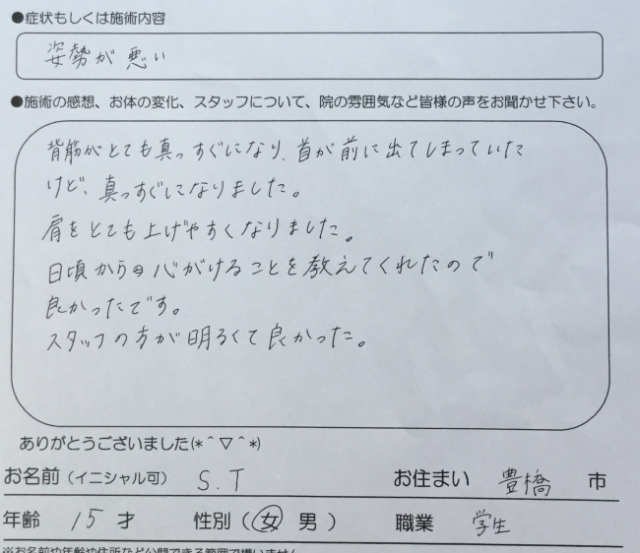 ●症状もしくは施術内容
姿勢が悪い
●施術の感想、お体の変化、スタッフについて、院の雰囲気など皆様の声をお聞かせ下さい。
背筋がとても真っすぐになり、首が前に出てしまっていた
けど、真っすぐになりました。
肩をとても上げやすくなりました。
日頃から心がけることを教えてくれたので
良かったです。
スタッフの方が明るくて良かった。
ありがとうございました(*^▽^*)
お名前(イニシャル可) S.T お住まい 豊橋 市
年齢 15 才 性別(女 男) 職業 学生
※お名前や年齢や住所など公開できる範囲で構いません